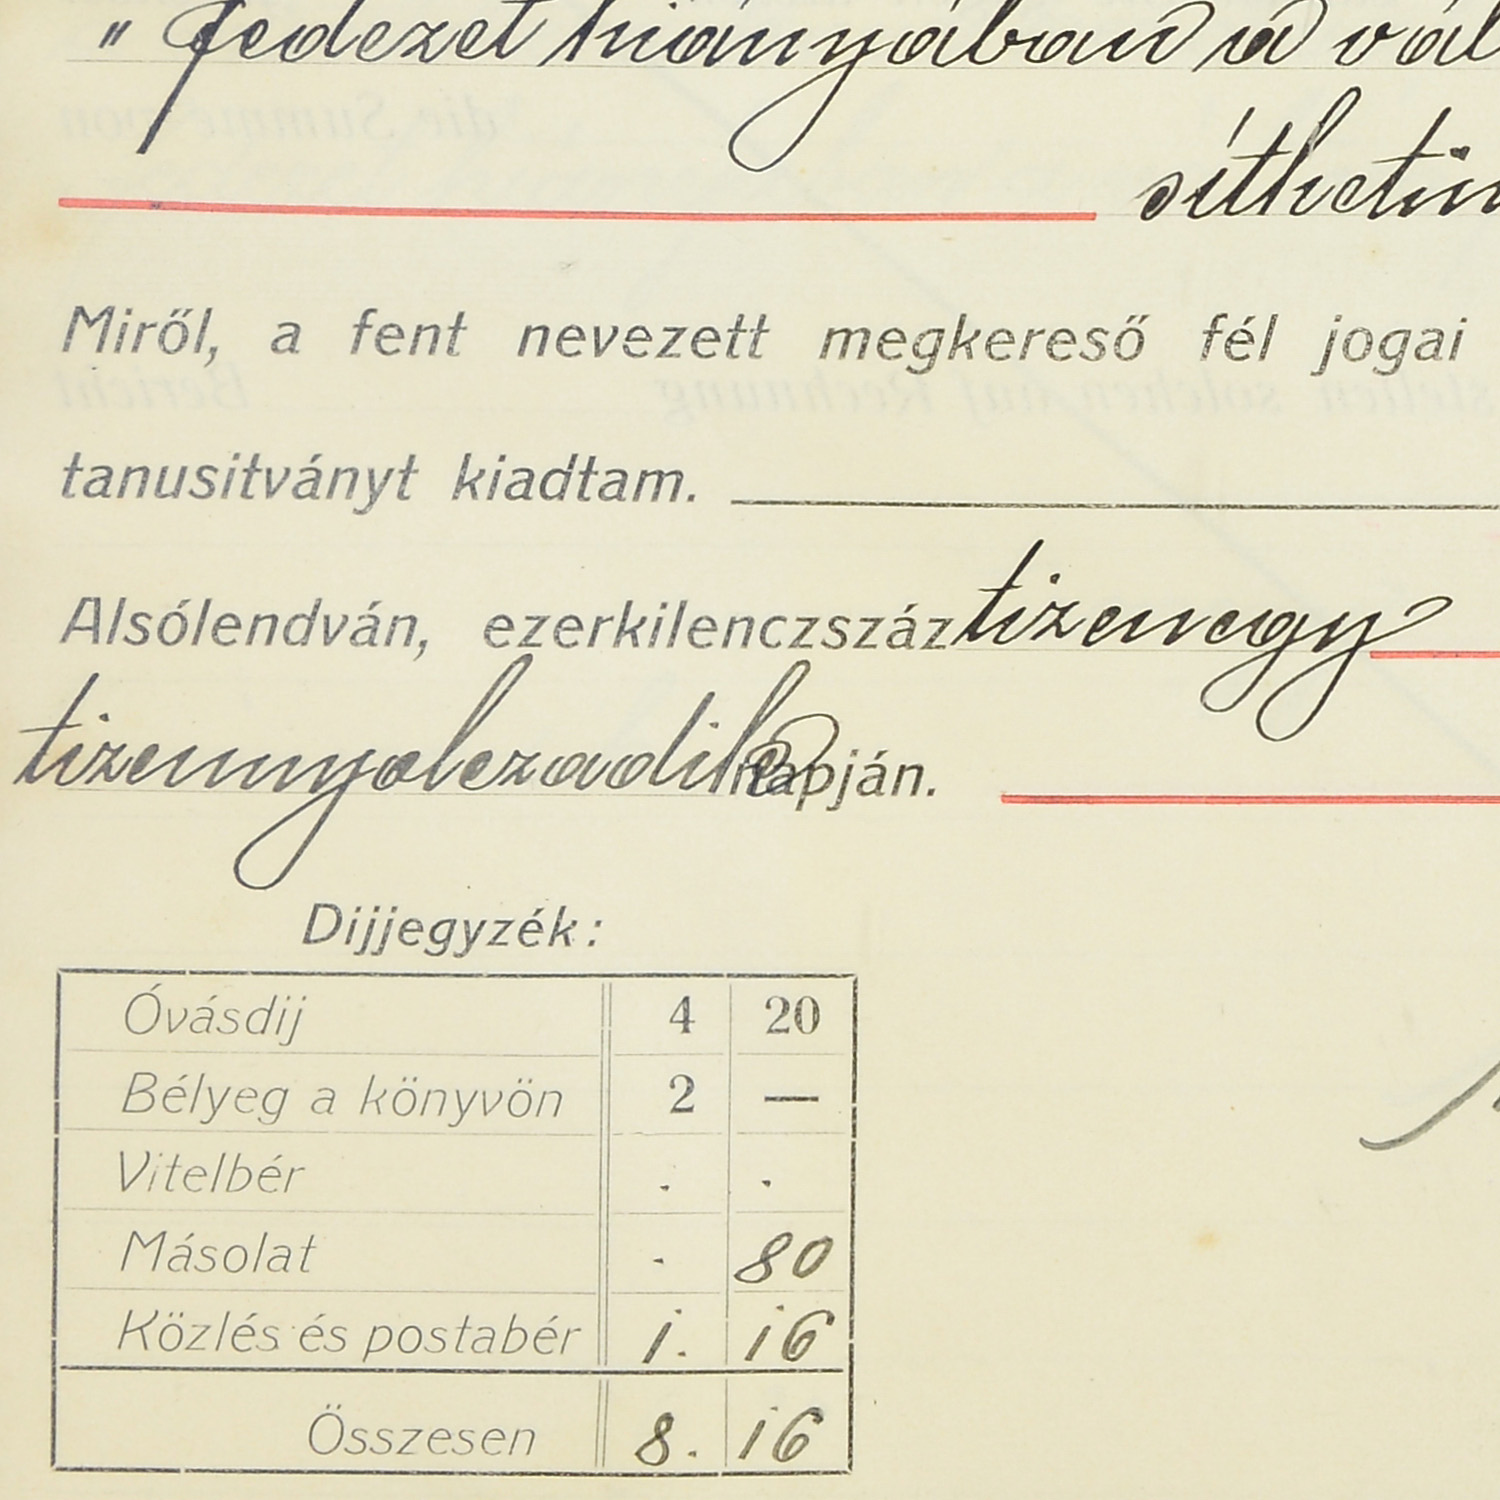 " fedezet hiányában a vál
síthetin
Miről, a fent nevezett megkereső fél jogai
tanusitványt kiadtam.
Alsólendván, ezerkilenczszáz tizenegy
tizennyolczadik napján.
Dijjegyzék:
Óvásdij 4 20
Bélyeg a könyvön 2 —
Vitelbér . .
Másolat . 80
Közlés és postabér 1. 16
Összesen 8. 16